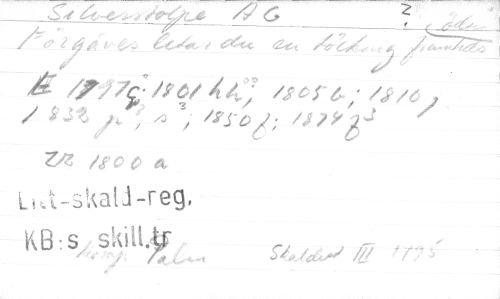 Silverstolpe AG ? "Ödet"
Förgäves letar du en tolkning framtids
E 1797 q; 1801 hh; 1805 b; 1810;
1832 p3, s3; 1850 f; 1874 f3
ZZ 1800 a
Litt-skald-reg.
KB:s skill.tr
komp. Palm Skaldest III 1795